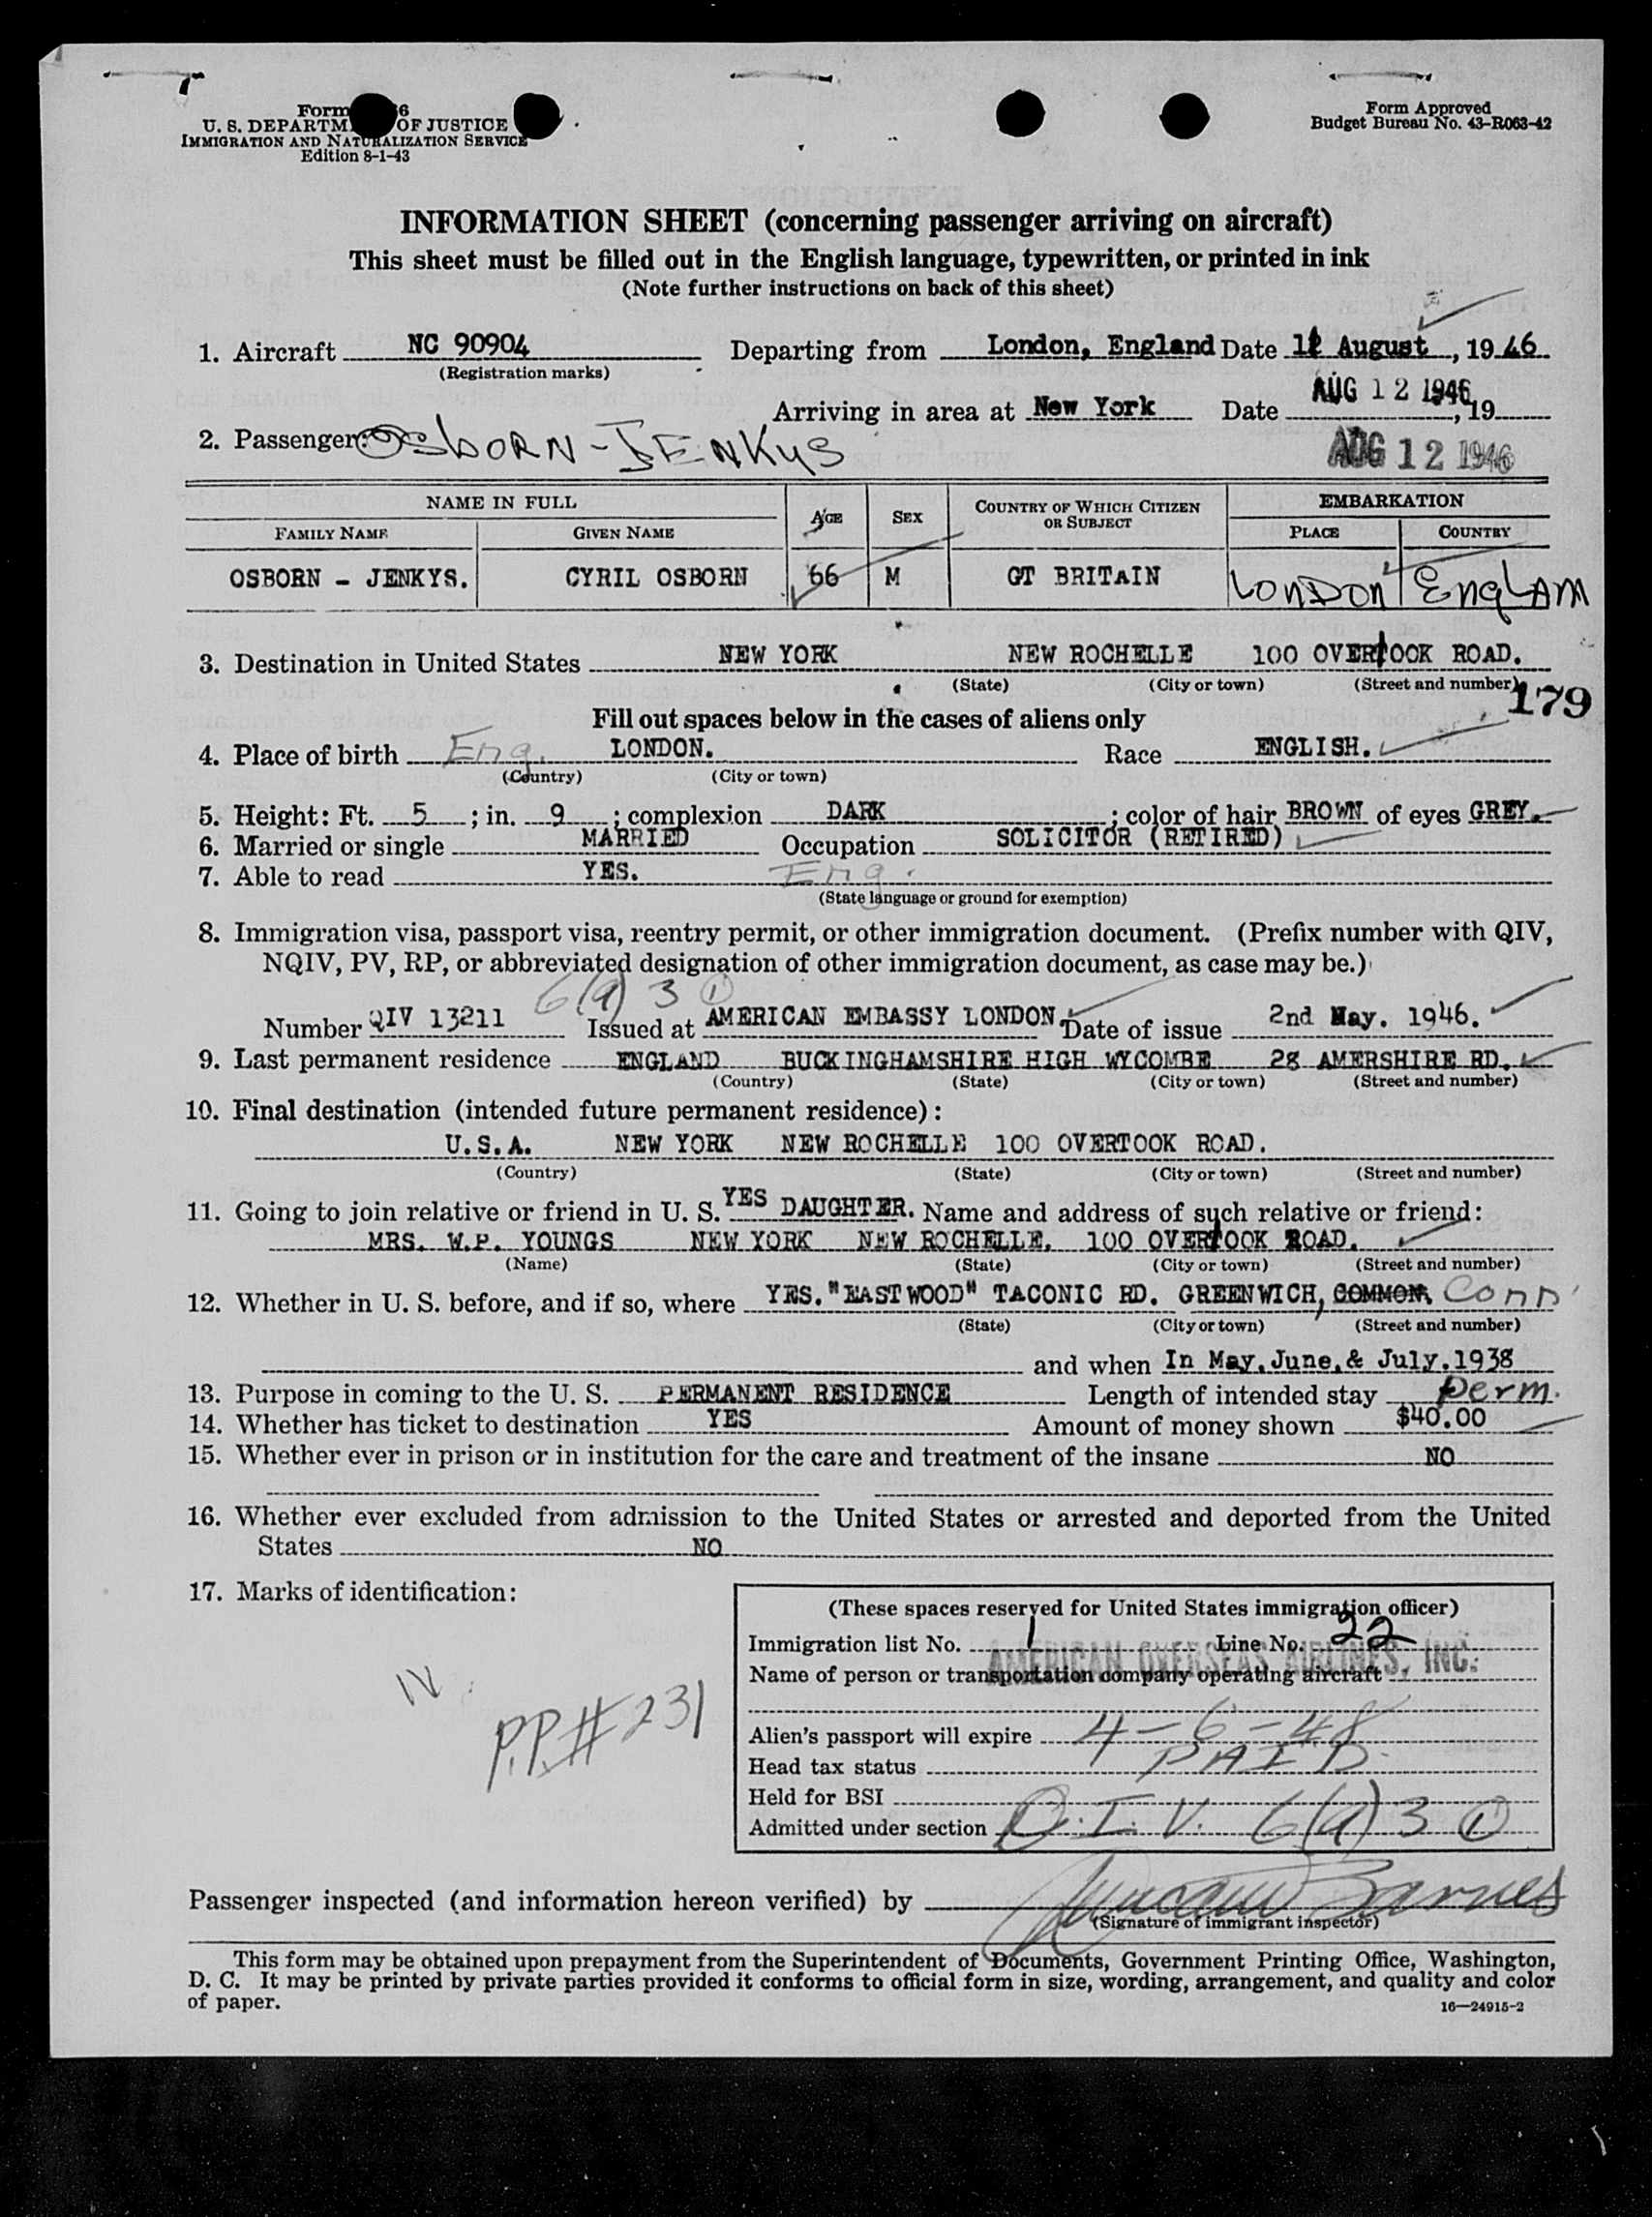 Form 6
U. S. DEPARTM OF JUSTICE
IMMIGRATION AND NATURALIZATION SERVICE
Edition 8-1-43
Form Approved
Budget Bureau No. 43-R063-42
INFORMATION SHEET (concerning passenger arriving on aircraft)
This sheet must be filled out in the English language, typewritten, or printed in ink
(Note further instructions on back of this sheet)
1. Aircraft NC 90904 Departing from London, England Date August, 1946
(Registration marks)
Arriving in area at New York Date AUG 12 1946, 19
2. Passenger: OSBORN-JENKYS AUG 12 1946
NAME IN FULL AGE SEX COUNTRY OF WHICH CITIZEN OR SUBJECT EMBARKATION
FAMILY NAME GIVEN NAME PLACE COUNTRY
OSBORN - JENKYS. CYRIL OSBORN 66 M GT BRITAIN LONDON England
3. Destination in United States NEW YORK NEW ROCHELLE 100 OVERLOOK ROAD.
(State) (City or town) (Street and number)
179
Fill out spaces below in the cases of aliens only
4. Place of birth Eng. LONDON. Race ENGLISH.
(Country) (City or town)
5. Height: Ft. 5; in. 9; complexion DARK; color of hair BROWN of eyes GREY.
6. Married or single MARRIED Occupation SOLICITOR (RETIRED)
7. Able to read YES. Eng.
(State language or ground for exemption)
8. Immigration visa, passport visa, reentry permit, or other immigration document. (Prefix number with QIV,
NQIV, PV, RP, or abbreviated designation of other immigration document, as case may be.)
6(a) 3 (1)
Number QIV 13211 Issued at AMERICAN EMBASSY LONDON Date of issue 2nd May. 1946.
9. Last permanent residence ENGLAND BUCKINGHAMSHIRE HIGH WYCOMBE 28 AMERSHIRE RD.
(Country) (State) (City or town) (Street and number)
10. Final destination (intended future permanent residence):
U.S.A. NEW YORK NEW ROCHELLE 100 OVERTOOK ROAD.
(Country) (State) (City or town) (Street and number)
11. Going to join relative or friend in U. S. YES DAUGHTER. Name and address of such relative or friend:
MRS. W.P. YOUNGS NEW YORK NEW ROCHELLE. 100 OVERLOOK ROAD.
(Name) (State) (City or town) (Street and number)
12. Whether in U. S. before, and if so, where YES. "EASTWOOD" TACONIC RD. GREENWICH, COMMON, Conn
(State) (City or town) (Street and number)
and when In May, June, & July. 1938
13. Purpose in coming to the U. S. PERMANENT RESIDENCE Length of intended stay perm.
14. Whether has ticket to destination YES Amount of money shown $40.00
15. Whether ever in prison or in institution for the care and treatment of the insane NO
16. Whether ever excluded from admission to the United States or arrested and deported from the United
States NO
17. Marks of identification:
(These spaces reserved for United States immigration officer)
Immigration list No. 1 Line No. 22
AMERICAN OVERSEAS AIRLINES, INC.
Name of person or transportation company operating aircraft
P.P.# 231
Alien's passport will expire 4-6-48
Head tax status PAID.
Held for BSI
Admitted under section Q.I.V. 6(a) 3 (1)
Passenger inspected (and information hereon verified) by Barnes
(Signature of immigrant inspector)
This form may be obtained upon prepayment from the Superintendent of Documents, Government Printing Office, Washington,
D. C. It may be printed by private parties provided it conforms to official form in size, wording, arrangement, and quality and color
of paper.
16—24915-2